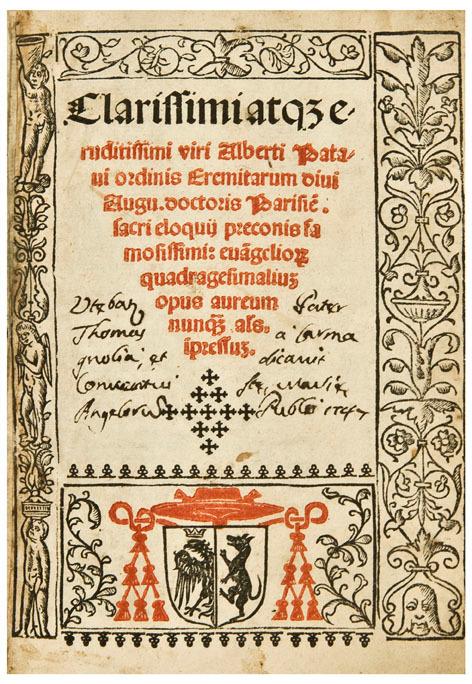 Clarissimi atqꝫ e-
ruditissimi viri Alberti Pata-
ui ordinis Eremitarum diui
Augu. doctoris Parisiē.
sacri eloquij preconis fa
mosissimi: euāgelioꝝ
quadragesimaliuꝫ
opus aureum
nunqꝫ als.
ipressuꝫ.
Frater
Thomas a
et dicauit
Conuentui Stę. Marię
Angeloru